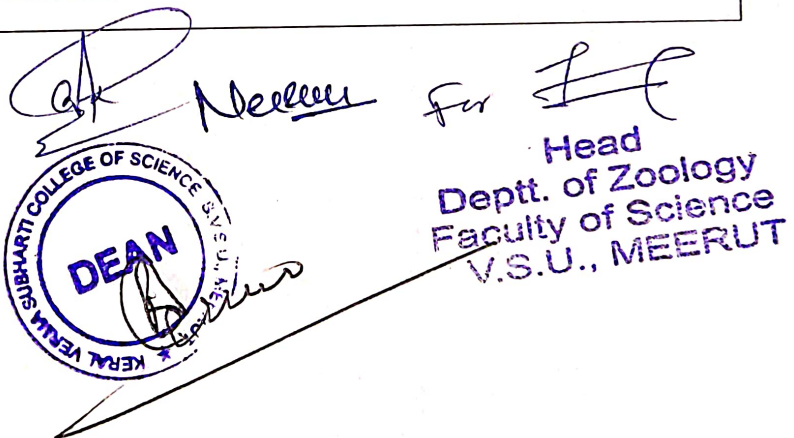 For
Head
Deptt. of Zoology
Faculty of Science
V.S.U., MEERUT
KERAL VERMA SUBHARTI COLLEGE OF SCIENCE S.V.S.U., MEERUT
DEAN